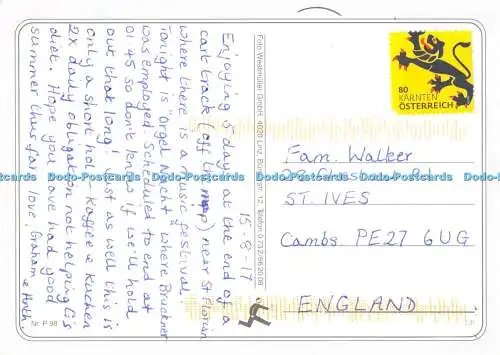 15-8-17
Enjoying 5 days at the end of a
cart track (off the map) near St Florian
where there is a music festival.
Tonight is "Orgel Nacht" where Bruckner
was employed. Scheduled to end at
01 45 so don't know if we'll hold
out that long! Just as well this is
only a short hol - Kaffee & Kuchen
2x daily obligation not helping G's
diet. Hope you have had good
summer thus far. love, Graham
& Hvch.
Nr. P 98
Foto Weidmüller GmbH, 4020 Linz, Telefon 0732/662608
80
KÄRNTEN
ÖSTERREICH
Fam. Walker
Rd
ST. IVES
Cambs. PE27 6UG
ENGLAND
Dodo-Postcards Dodo-Postcards Dodo-Postcards Dodo-Postcards